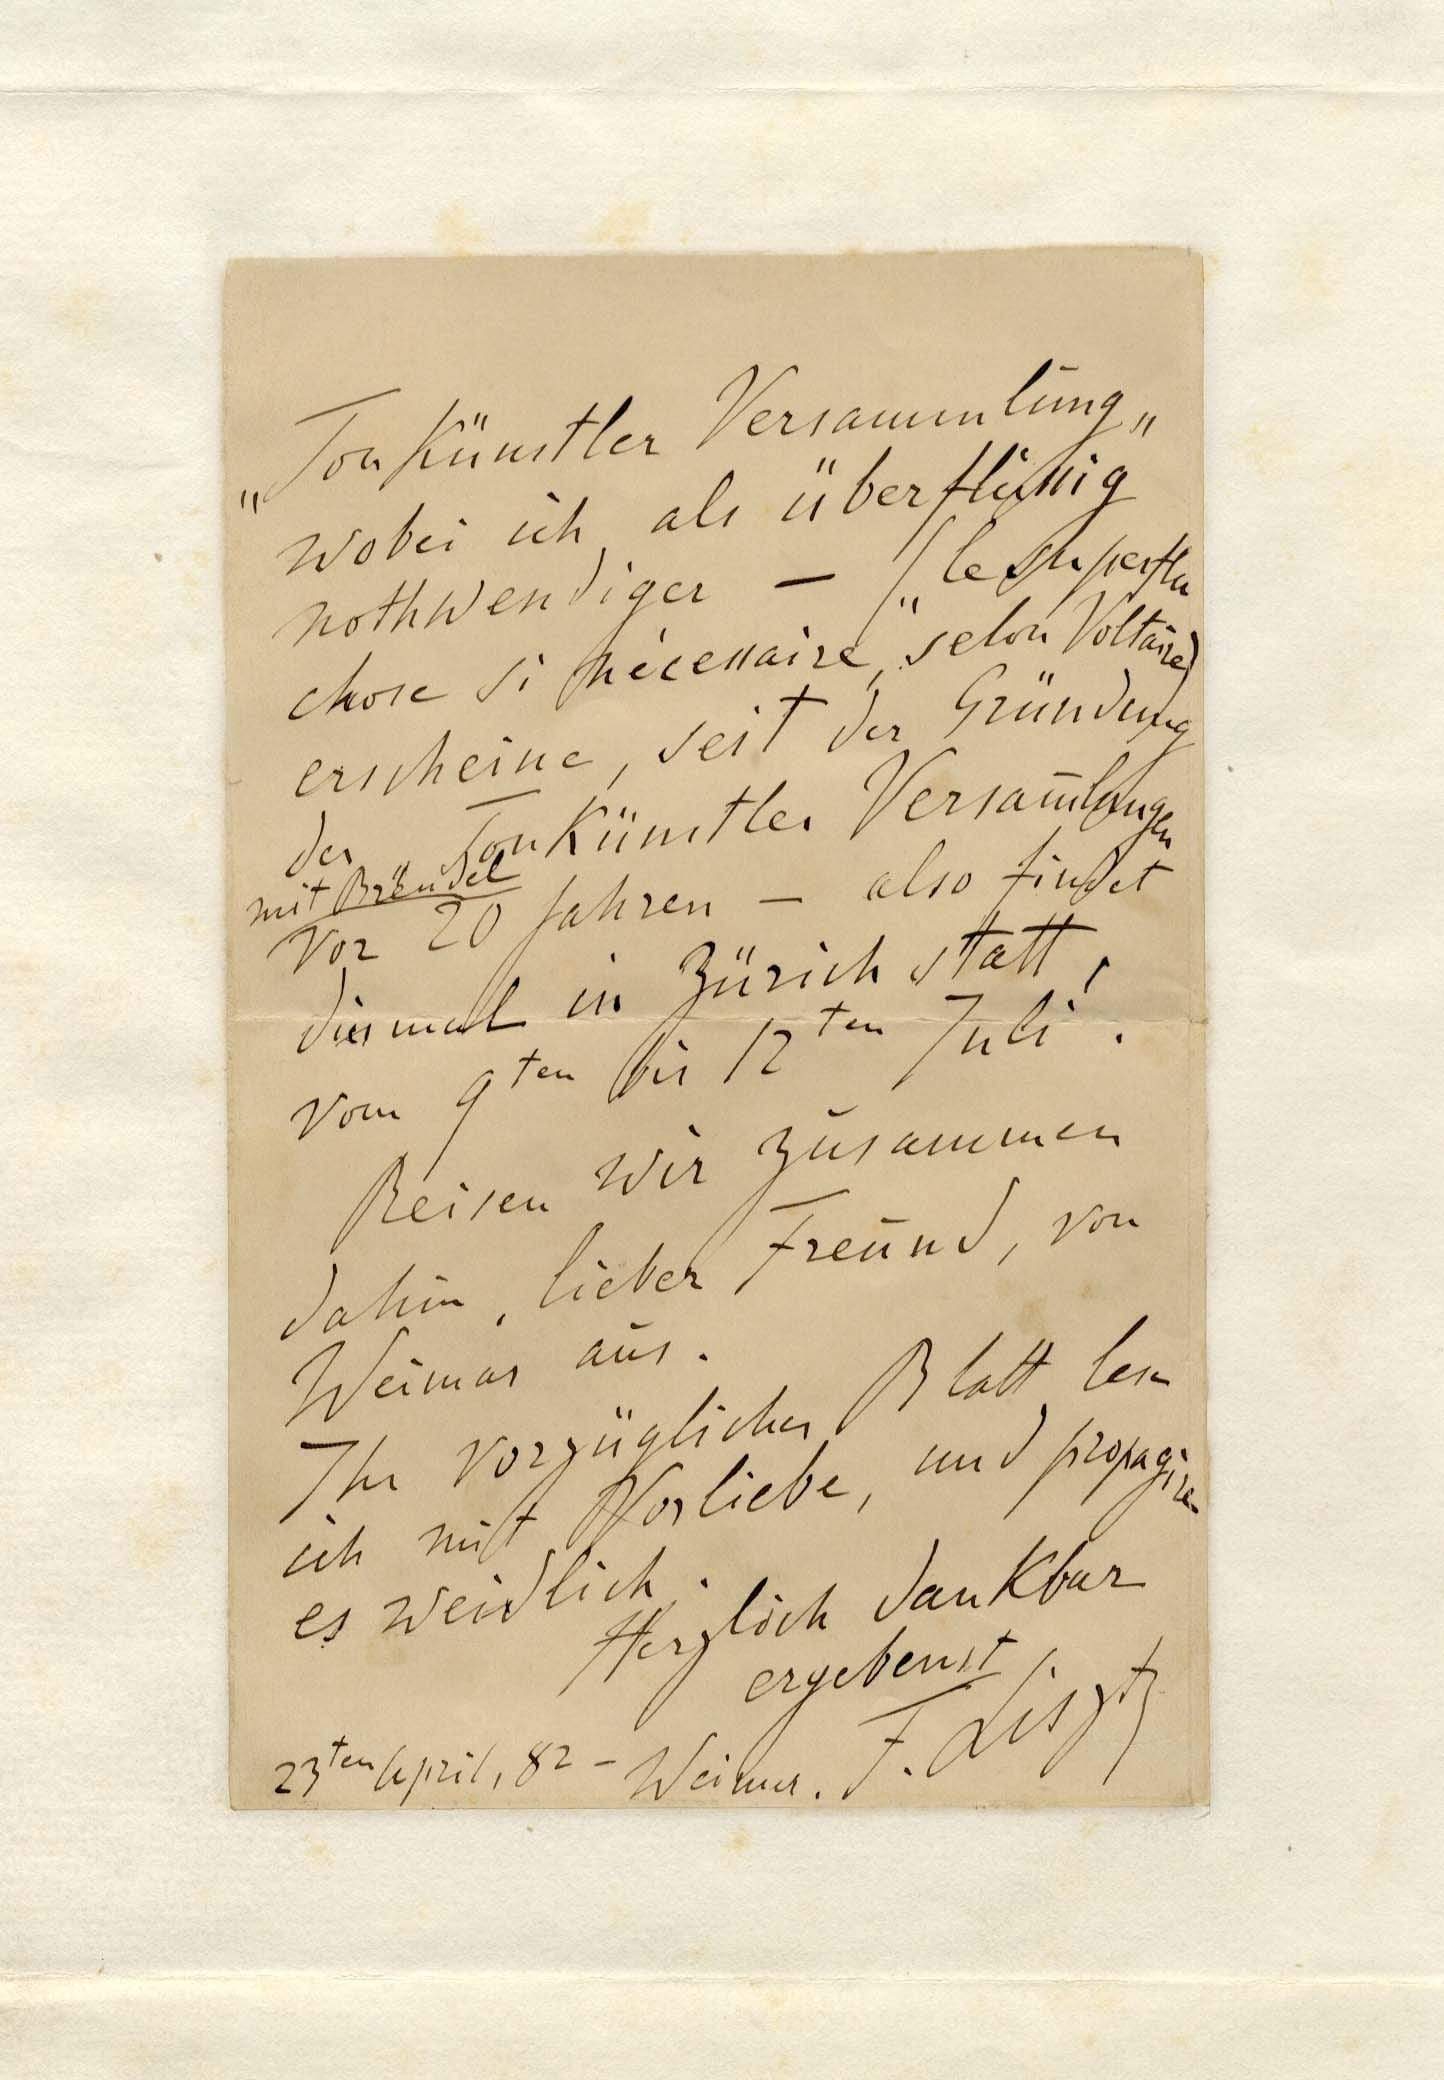 „Ton Künstler Versammlung„
wobei ich, als überflüssig
nothwendiger — (le superflu
chose si nécessaire," selon Voltaire)
erscheine, seit der Gründung
der Tonkünstler Versam̄lungen
mit Brendel
vor 20 Jahren — also findet
diesmal in Zürich statt,
vom 9ten bis 12ten Juli.
Reisen wir zusammen
dahin, lieber Freund, von
Weimar aus.
Ihr vorzügliches Blatt lese
ich mit Vorliebe, und propagire
es weidlich.
Herzlich dankbar
ergebenst
F. Liszt
23ten April, 82 – Weimar.